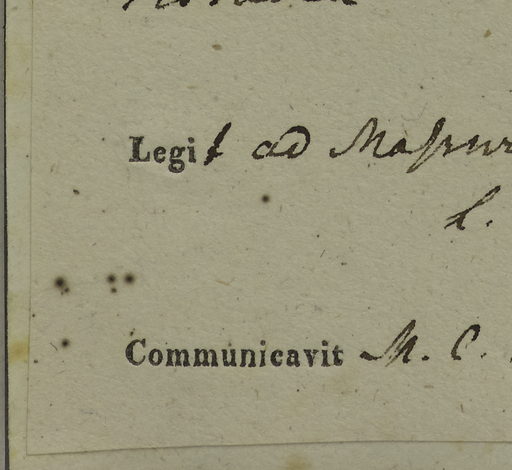 Legit ad Mapur
L.
Communicavit M. C.